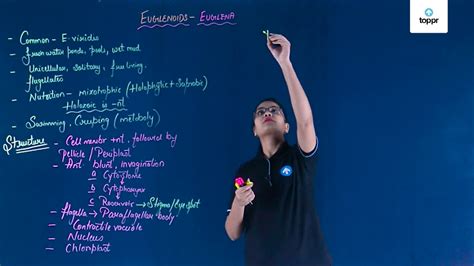 EUGLENOIDS - EUGLENA
toppr
- Common - E. viridis
- fresh water ponds, pools, wet mud
- Unicellular, solitary, free living.
flagellates
- Nutrition - mixotrophic (Holophytic + Saprobic)
Holozoic is -nt.
- Swimming - Creeping (metaboly)
Structure - Cell membr +nt, followed by
Pellicle / Periplast
- Ant blunt, invagination
a Cytostome
b Cytopharynx
c Reservoir → Stigma/Eye spot
- flagella → Paraflagellar body
- Contractile vacuole
- Nucleus
- Chloroplast